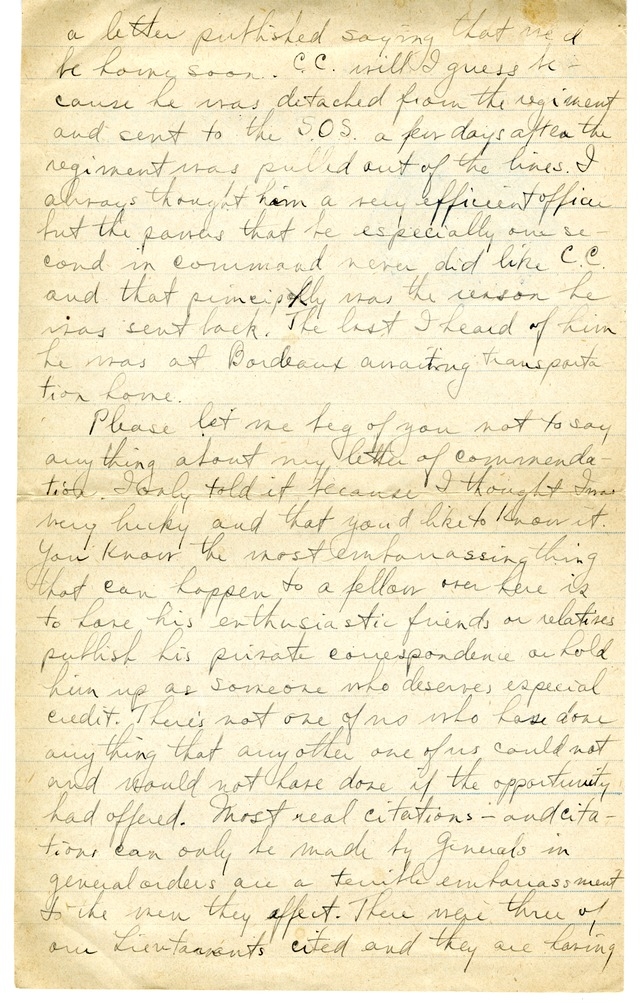 a letter published saying that we'd
be home soon. C.C. will I guess be-
cause he was detached from the regiment
and sent to the S.O.S. a few days after the
regiment was pulled out of the lines. I
always thought him a very efficient officer
but the powers that be especially our se-
cond in command never did like C.C.
and that principally was the reason he
was sent back. The last I heard of him
he was at Bordeaux awaiting transporta
tion home.
Please let me beg of you not to say
anything about my letter of commenda-
tion. I only told it because I thought I was
very lucky and that you'd like to know it.
You know the most embarrassing thing
that can happen to a fellow over here is
to have his enthusiastic friends or relatives
publish his private correspondence or hold
him up as someone who deserves especial
credit. There's not one of us who have done
anything that any other one of us could not
and would not have done if the opportunity
had offered. Most real citations - and cita-
tions can only be made by Generals in
general orders are a terrible embarrassment
to the men they affect. There were three of
our Lieutanants cited and they are having